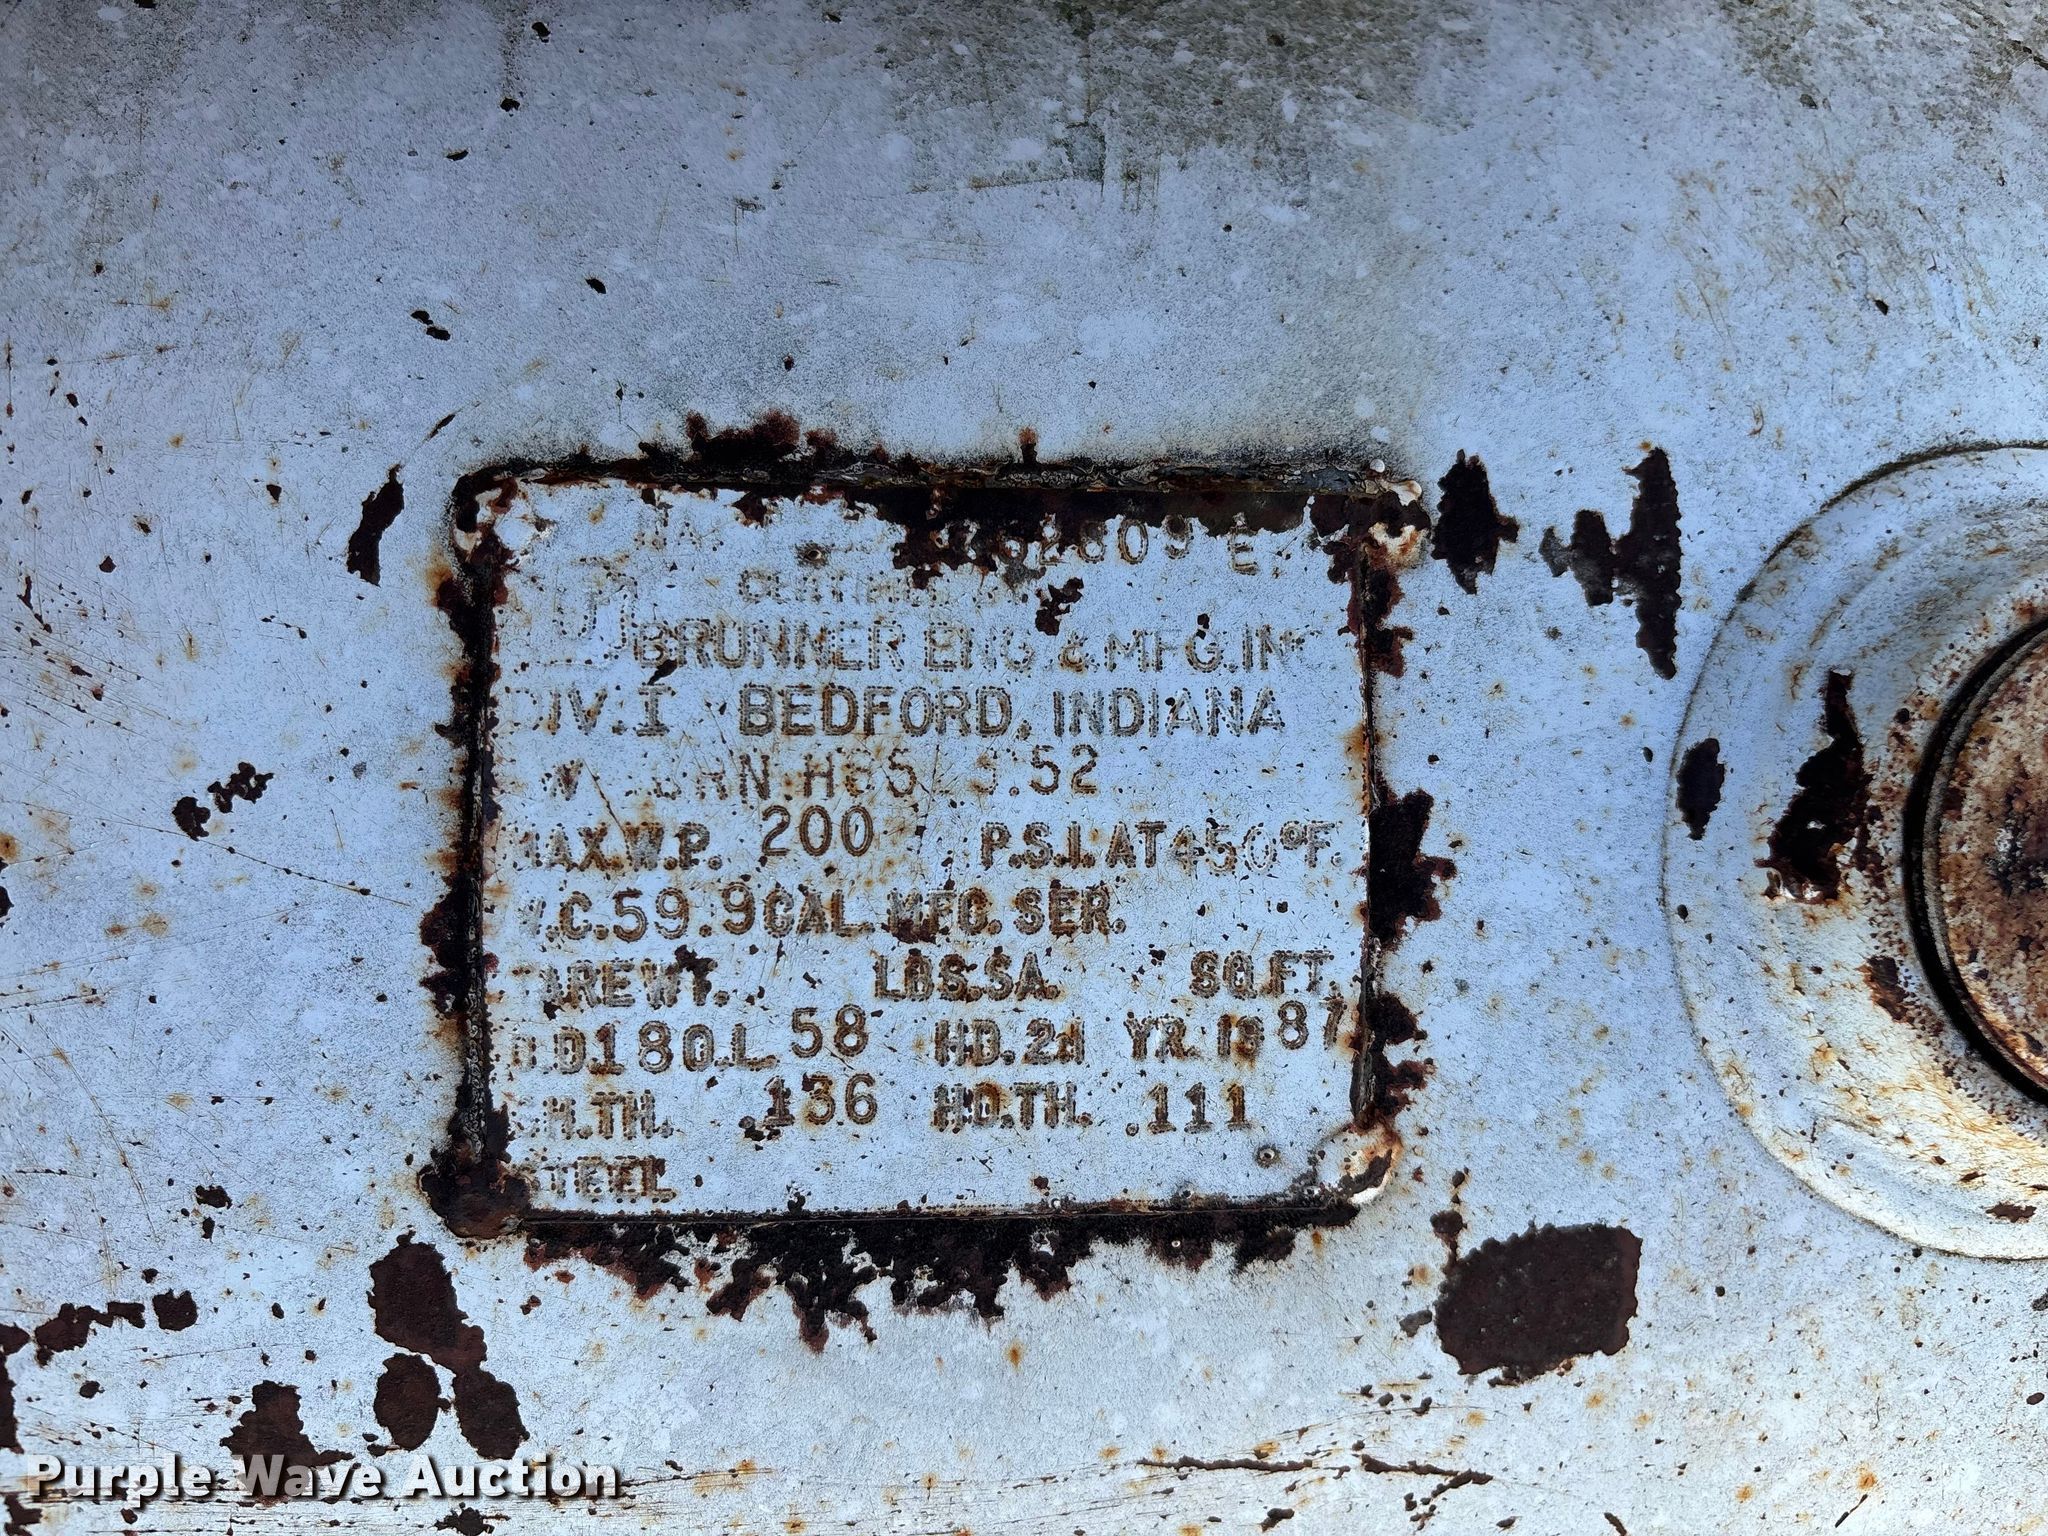 BRUNNER ENG. & MFG. INC
DIV. I BEDFORD, INDIANA
MAX. W.P. 200 P.S.I. AT 450°F.
W.C. 59.9 GAL. MFG. SER.
TARE WT. LBS. S.A. SQ. FT.
O.D. 18 O.L. 58 HD. 2:1 YR. 1987
SH. TH. .136 HD. TH. .111
STEEL
Purple Wave Auction